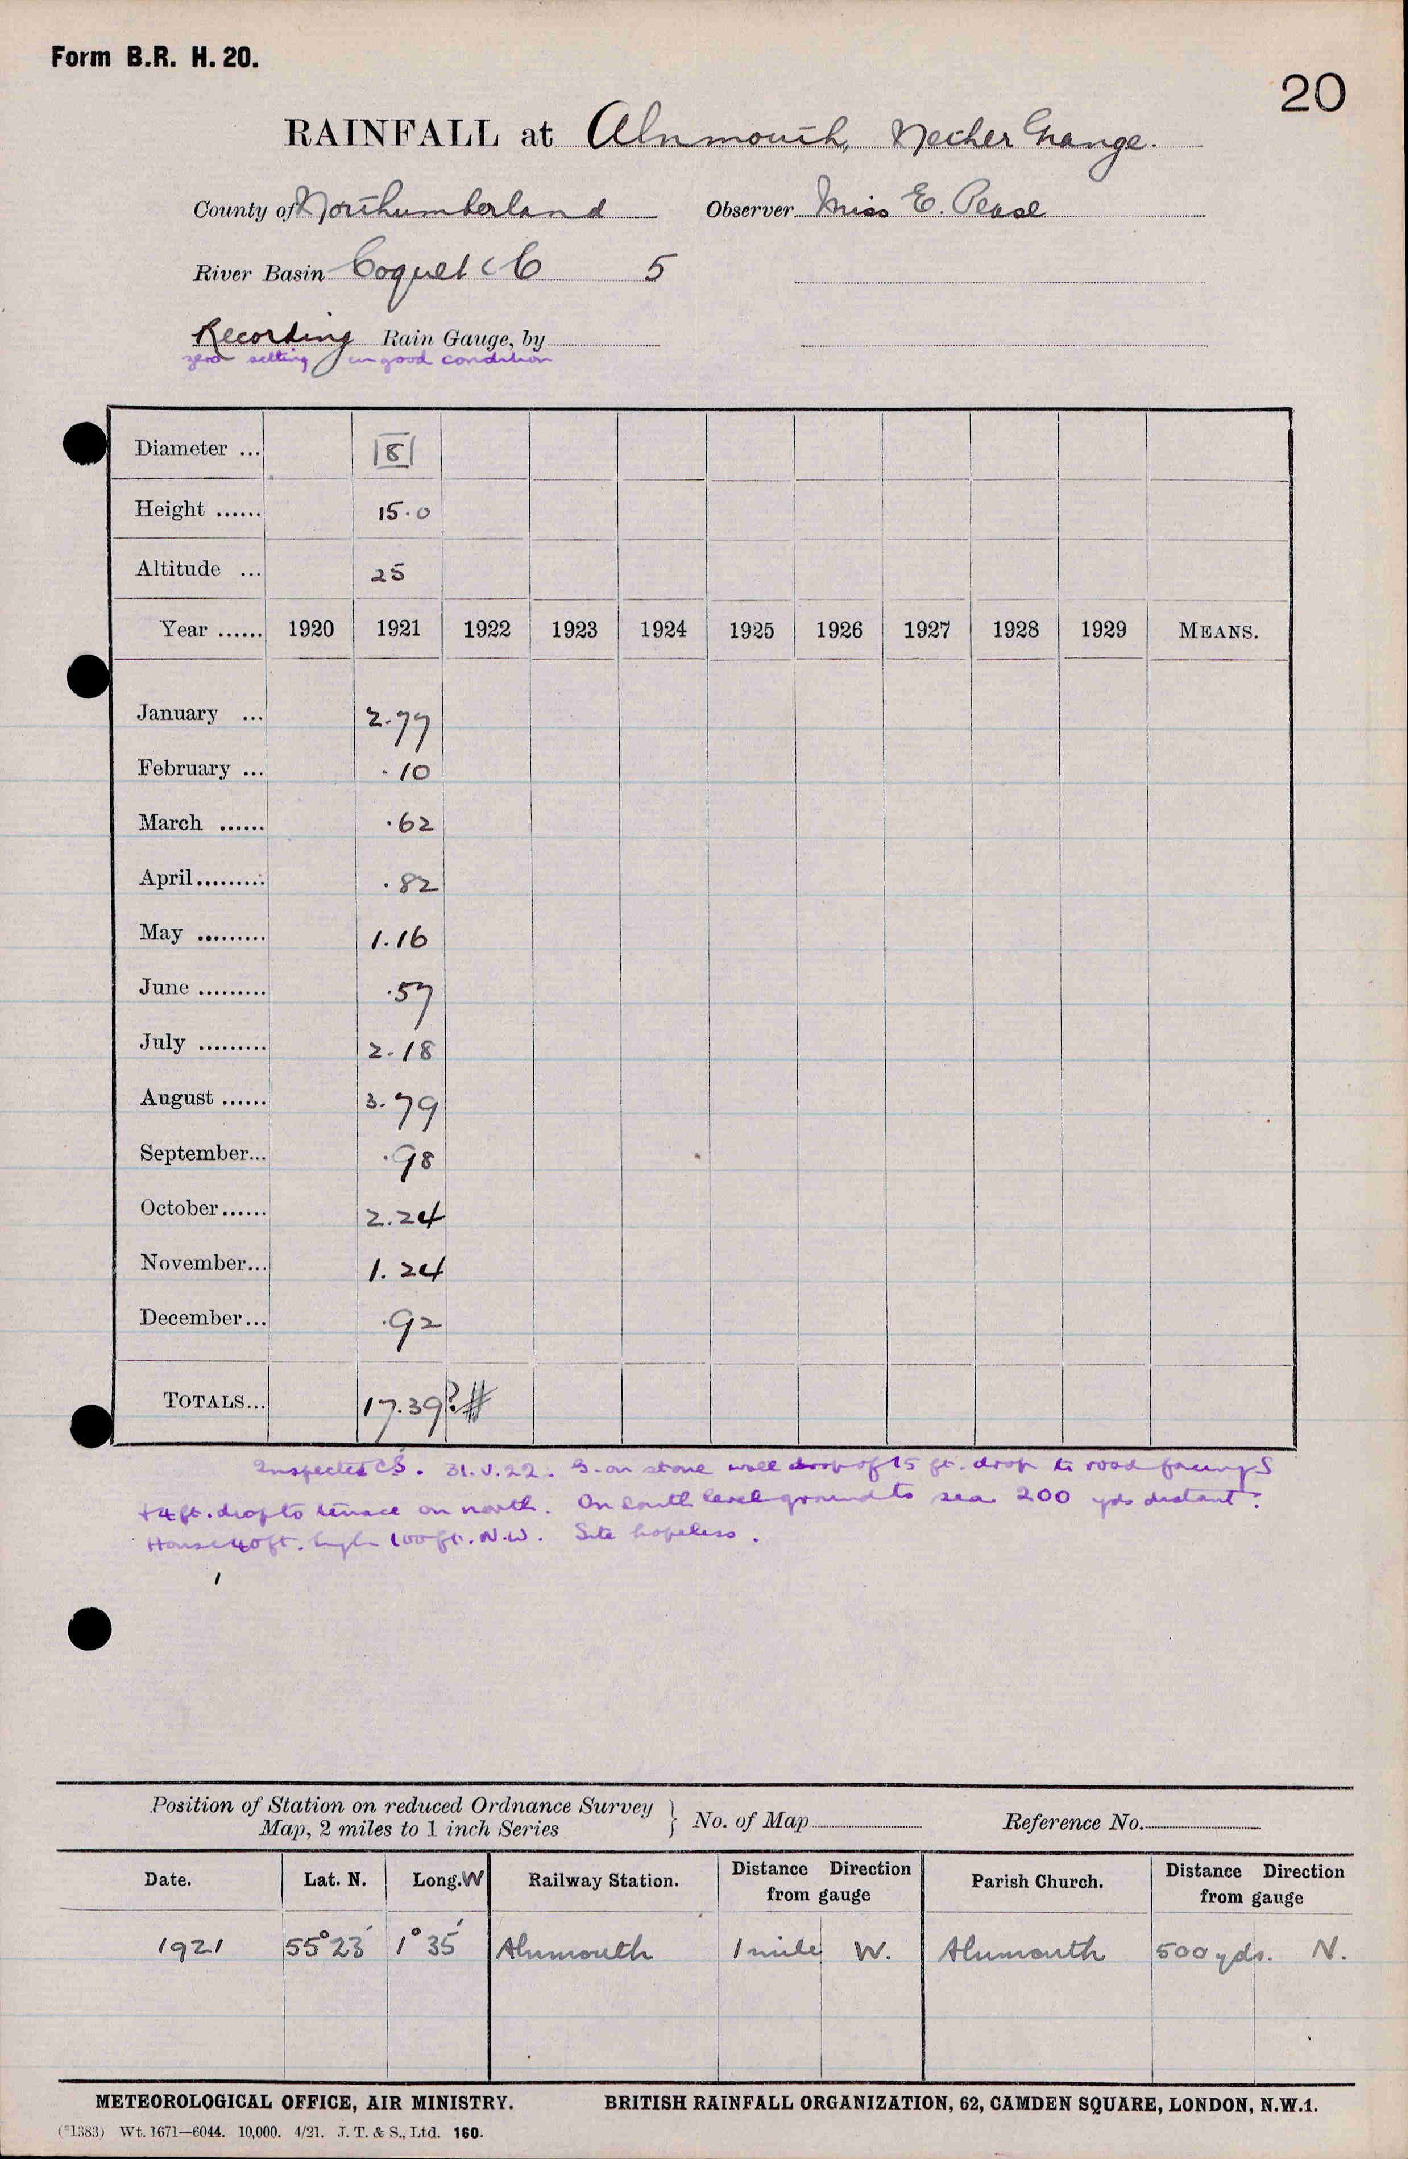 Form B.R. H. 20.
20
RAINFALL at Alnmouth, Nether Grange.
County of Northumberland Observer Miss E. Pease
River Basin Coquet 5
Recording Rain Gauge, by
zero setting in good condition
Diameter ... 8
Height ...... 15.0
Altitude ... 25
Year ...... 1920 1921 1922 1923 1924 1925 1926 1927 1928 1929 MEANS.
January ... 2.77
February ... .10
March ...... .62
April......... .82
May ......... 1.16
June ......... .57
July ......... 2.18
August ...... 3.79
September... .98
October...... 2.24
November... 1.24
December... .92
TOTALS... 17.39 ? #
Inspected CS. 31.V.22. G. on stone wall of 15 ft. drop to road facing S
+ 4 ft. drop to terrace on north. On south level ground to sea 200 yds distant.
House 40 ft. high 100 ft. N.W. Site hopeless.
Position of Station on reduced Ordnance Survey
Map, 2 miles to 1 inch Series } No. of Map Reference No.
Date. Lat. N. Long. W Railway Station. Distance Direction from gauge Parish Church. Distance Direction from gauge
1921 55°23' 1°35' Alnmouth 1 mile W. Alnmouth 500 yds. N.
METEOROLOGICAL OFFICE, AIR MINISTRY. BRITISH RAINFALL ORGANIZATION, 62, CAMDEN SQUARE, LONDON, N.W.1.
(*1383) Wt. 1671—6044. 10,000. 4/21. J. T. & S., Ltd. 160.